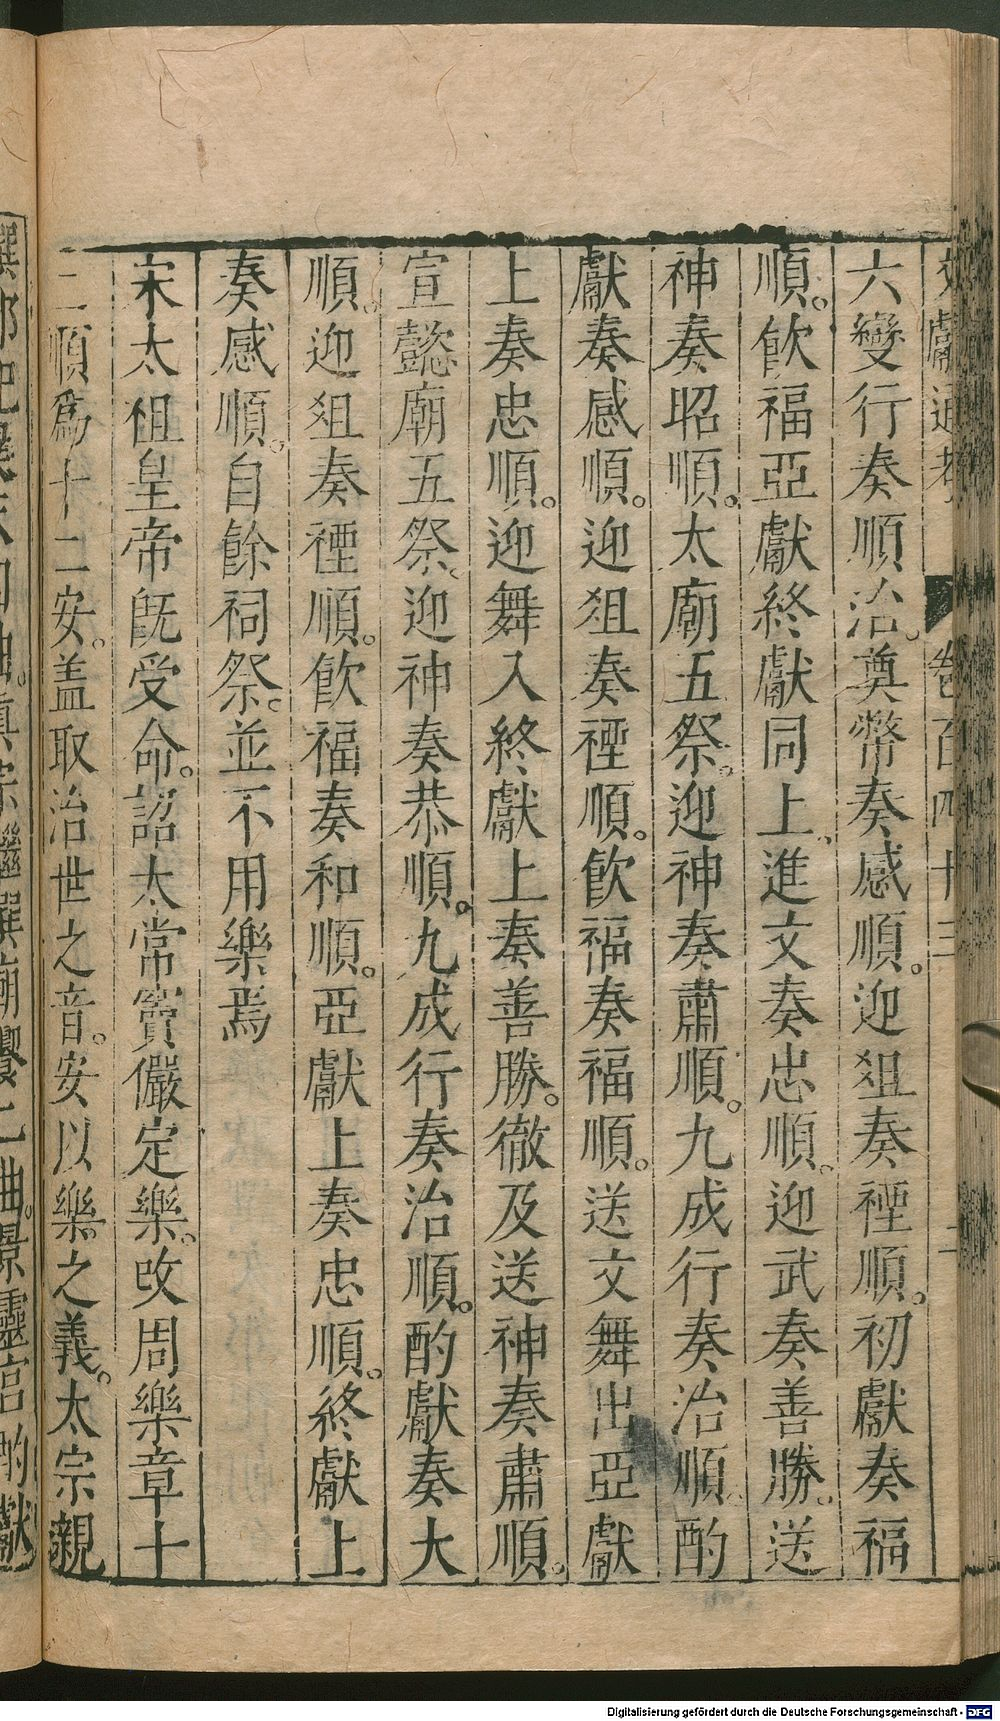 文獻通考 卷百四十三
六變行奏順治。奠幣奏感順。迎俎奏禋順。初獻奏福
順。飲福亞獻終獻同上、進文奏忠順。迎武奏善勝。送
神奏昭順。太廟五祭。迎神奏肅順。九成行奏治順。酌
獻奏感順。迎俎奏禋順。飲福奏福順。送文舞出亞獻
上奏忠順。迎舞入終獻上奏善勝。徹及送神奏肅順。
宣懿廟五祭、迎神奏恭順。九成行奏治順。酌獻奏大
順。迎俎奏禋順。飲福奏和順。亞獻上奏忠順。終獻上
奏感順。自餘祠祭。並不用樂焉
宋太祖皇帝旣受命。詔太常竇儼定樂。改周樂章十
二順爲十二安。盖取治世之音。安以樂。之義。太宗親
撰郊祀 眞宗繼撰廟饗七曲。景靈宮酌獻
Digitalisierung gefördert durch die Deutsche Forschungsgemeinschaft - DFG